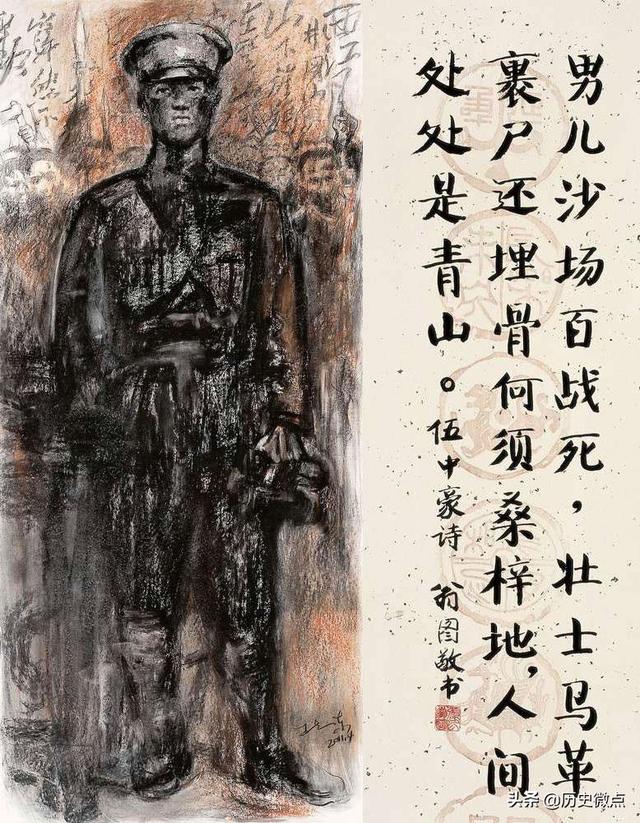 男儿沙场百战死，壮士马革
裹尸还埋骨何须桑梓地，人间
处处是青山。
伍中豪诗 翁图敬书
头条 @历史微点